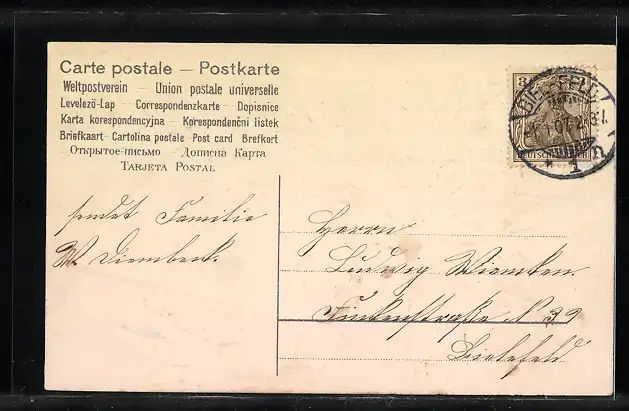 Carte postale — Postkarte
Weltpostverein — Union postale universelle
Levelező-Lap — Correspondenzkarte — Dopisnice
Karta korespondencyjna — Korespondenční listek
Briefkaart - Cartolina postale - Post card - Brefkort
Открытое-письмо — Дописна Карта
Tarjeta Postal
3
BIELEFELD
DEUTSCHES REICH
sendet Familie
W. Diembeck.
Herrn
Ludwig Wiemken
Finkenstraße N 39
Bielefeld